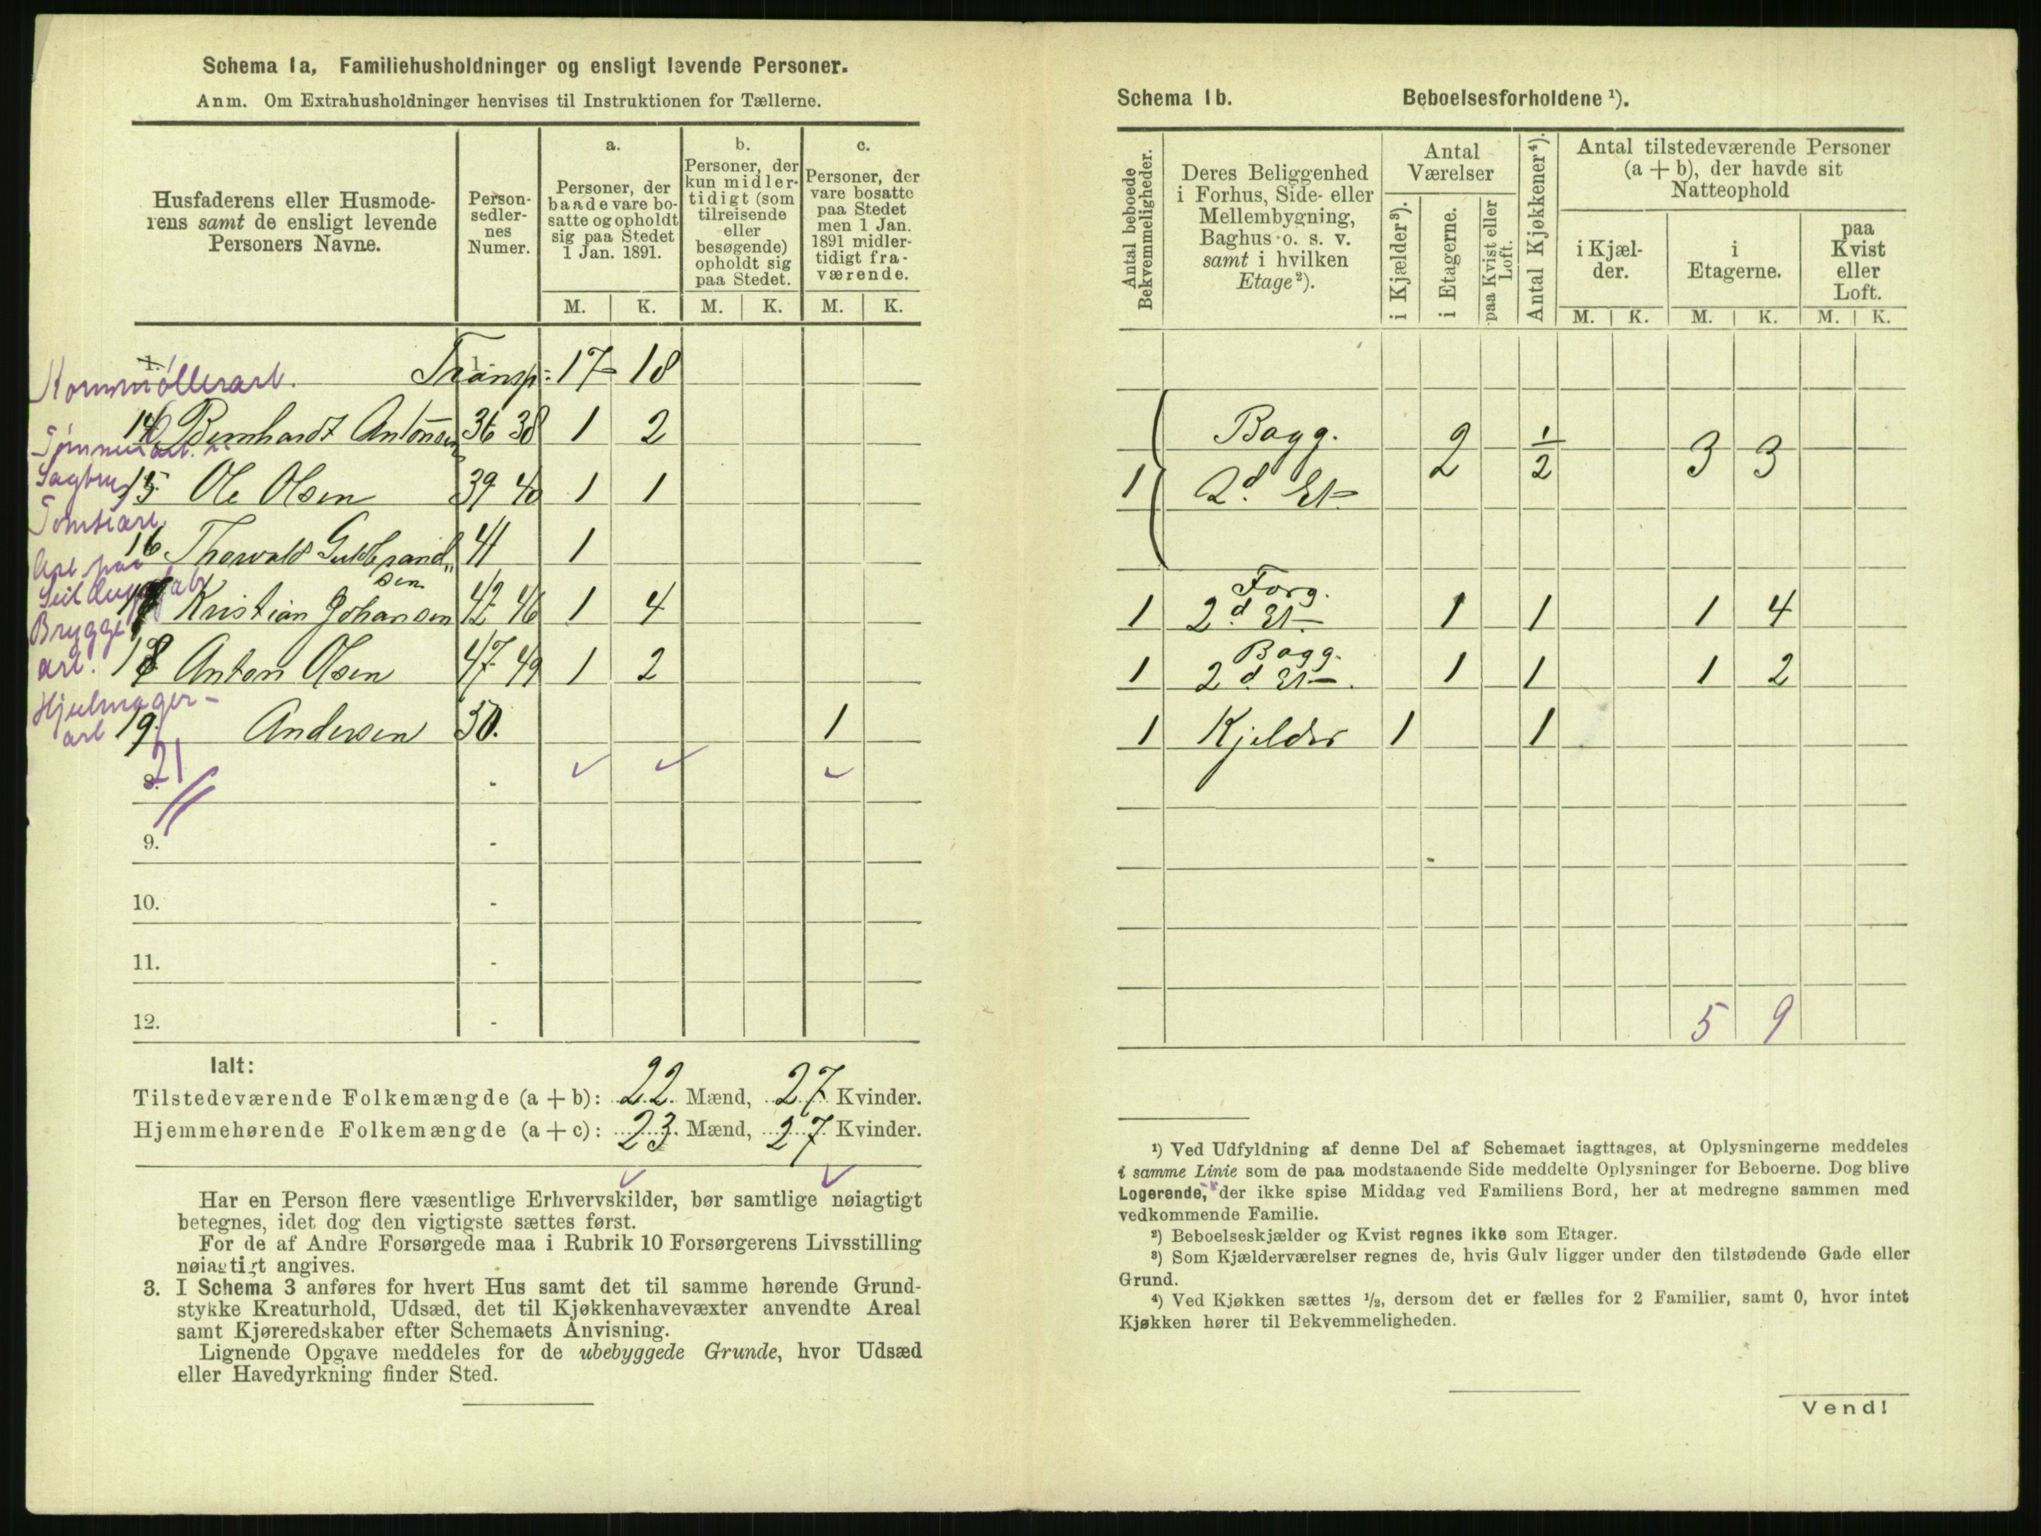 Schema 1a, Familiehusholdninger og ensligt levende Personer.
Anm. Om Extrahusholdninger henvises til Instruktionen for Tællerne.
Husfaderens eller Husmode-
rens samt de ensligt levende
Personers Navne.
Person-
sedler-
nes
Numer.
a.
Personer, der
baade vare bo-
satte og opholdt
sig paa Stedet
1 Jan. 1891.
b.
Personer, der
kun midler-
tidigt (som
tilreisende
eller
besøgende)
opholdt sig
paa Stedet.
c.
Personer, der
vare bosatte
paa Stedet
men 1 Jan.
1891 midler-
tidigt fra-
værende.
M. K. M. K. M. K.
1. Transp: 17 18
Kornmøllerarb.
14 Bernhardt Antonsen 36 38 1 2
Tømmerarb.
15 Ole Olsen 39 40 1 1
Sagbrug
Tomtearb.
16 Thorwald Guldbrand"
sen 41 1
Arb. paa
Seildugsfab
17 Kristian Johansen 42 46 1 4
Brygge
arb.
18 Anton Olsen 47 49 1 2
Hjulmager-
arb
19 Andersen 50. 1
21
8. -
9. -
10. -
11. -
12. -
Ialt:
Tilstedeværende Folkemængde (a + b): 22 Mænd, 27 Kvinder.
Hjemmehørende Folkemængde (a + c): 23 Mænd, 27 Kvinder.
Har en Person flere væsentlige Erhvervskilder, bør samtlige nøiagtigt
betegnes, idet dog den vigtigste sættes først.
For de af Andre Forsørgede maa i Rubrik 10 Forsørgerens Livsstilling
nøiagtigt angives.
3. I Schema 3 anføres for hvert Hus samt det til samme hørende Grund-
stykke Kreaturhold, Udsæd, det til Kjøkkenhavevæxter anvendte Areal
samt Kjøreredskaber efter Schemaets Anvisning.
Lignende Opgave meddeles for de ubebyggede Grunde, hvor Udsæd
eller Havedyrkning finder Sted.
Schema 1b. Beboelsesforholdene ¹).
Antal beboede
Bekvemmeligheder.
Deres Beliggenhed
i Forhus, Side- eller
Mellembygning,
Baghus o. s. v.
samt i hvilken
Etage²).
Antal
Værelser
i Kjælder³).
i Etagerne.
paa Kvist eller
Loft.
Antal Kjøkkener⁴).
Antal tilstedeværende Personer
(a + b), der havde sit
Natteophold
i Kjæl-
der.
i
Etagerne.
paa
Kvist
eller
Loft.
M. K. M. K. M. K.
Bagg.
1 2d. Et- 2 1/2 3 3
Forg.
1 2d Et- 1 1 1 4
Bagg.
1 2d Et-. 1 1 1 2
1 Kjelder 1 1
5 9
¹) Ved Udfyldning af denne Del af Schemaet iagttages, at Oplysningerne meddeles
i samme Linie som de paa modstaaende Side meddelte Oplysninger for Beboerne. Dog blive
Logerende, der ikke spise Middag ved Familiens Bord, her at medregne sammen med
vedkommende Familie.
²) Beboelseskjælder og Kvist regnes ikke som Etager.
³) Som Kjælderværelser regnes de, hvis Gulv ligger under den tilstødende Gade eller
Grund.
⁴) Ved Kjøkken sættes ½, dersom det er fælles for 2 Familier, samt 0, hvor intet
Kjøkken hører til Bekvemmeligheden.
Vend!